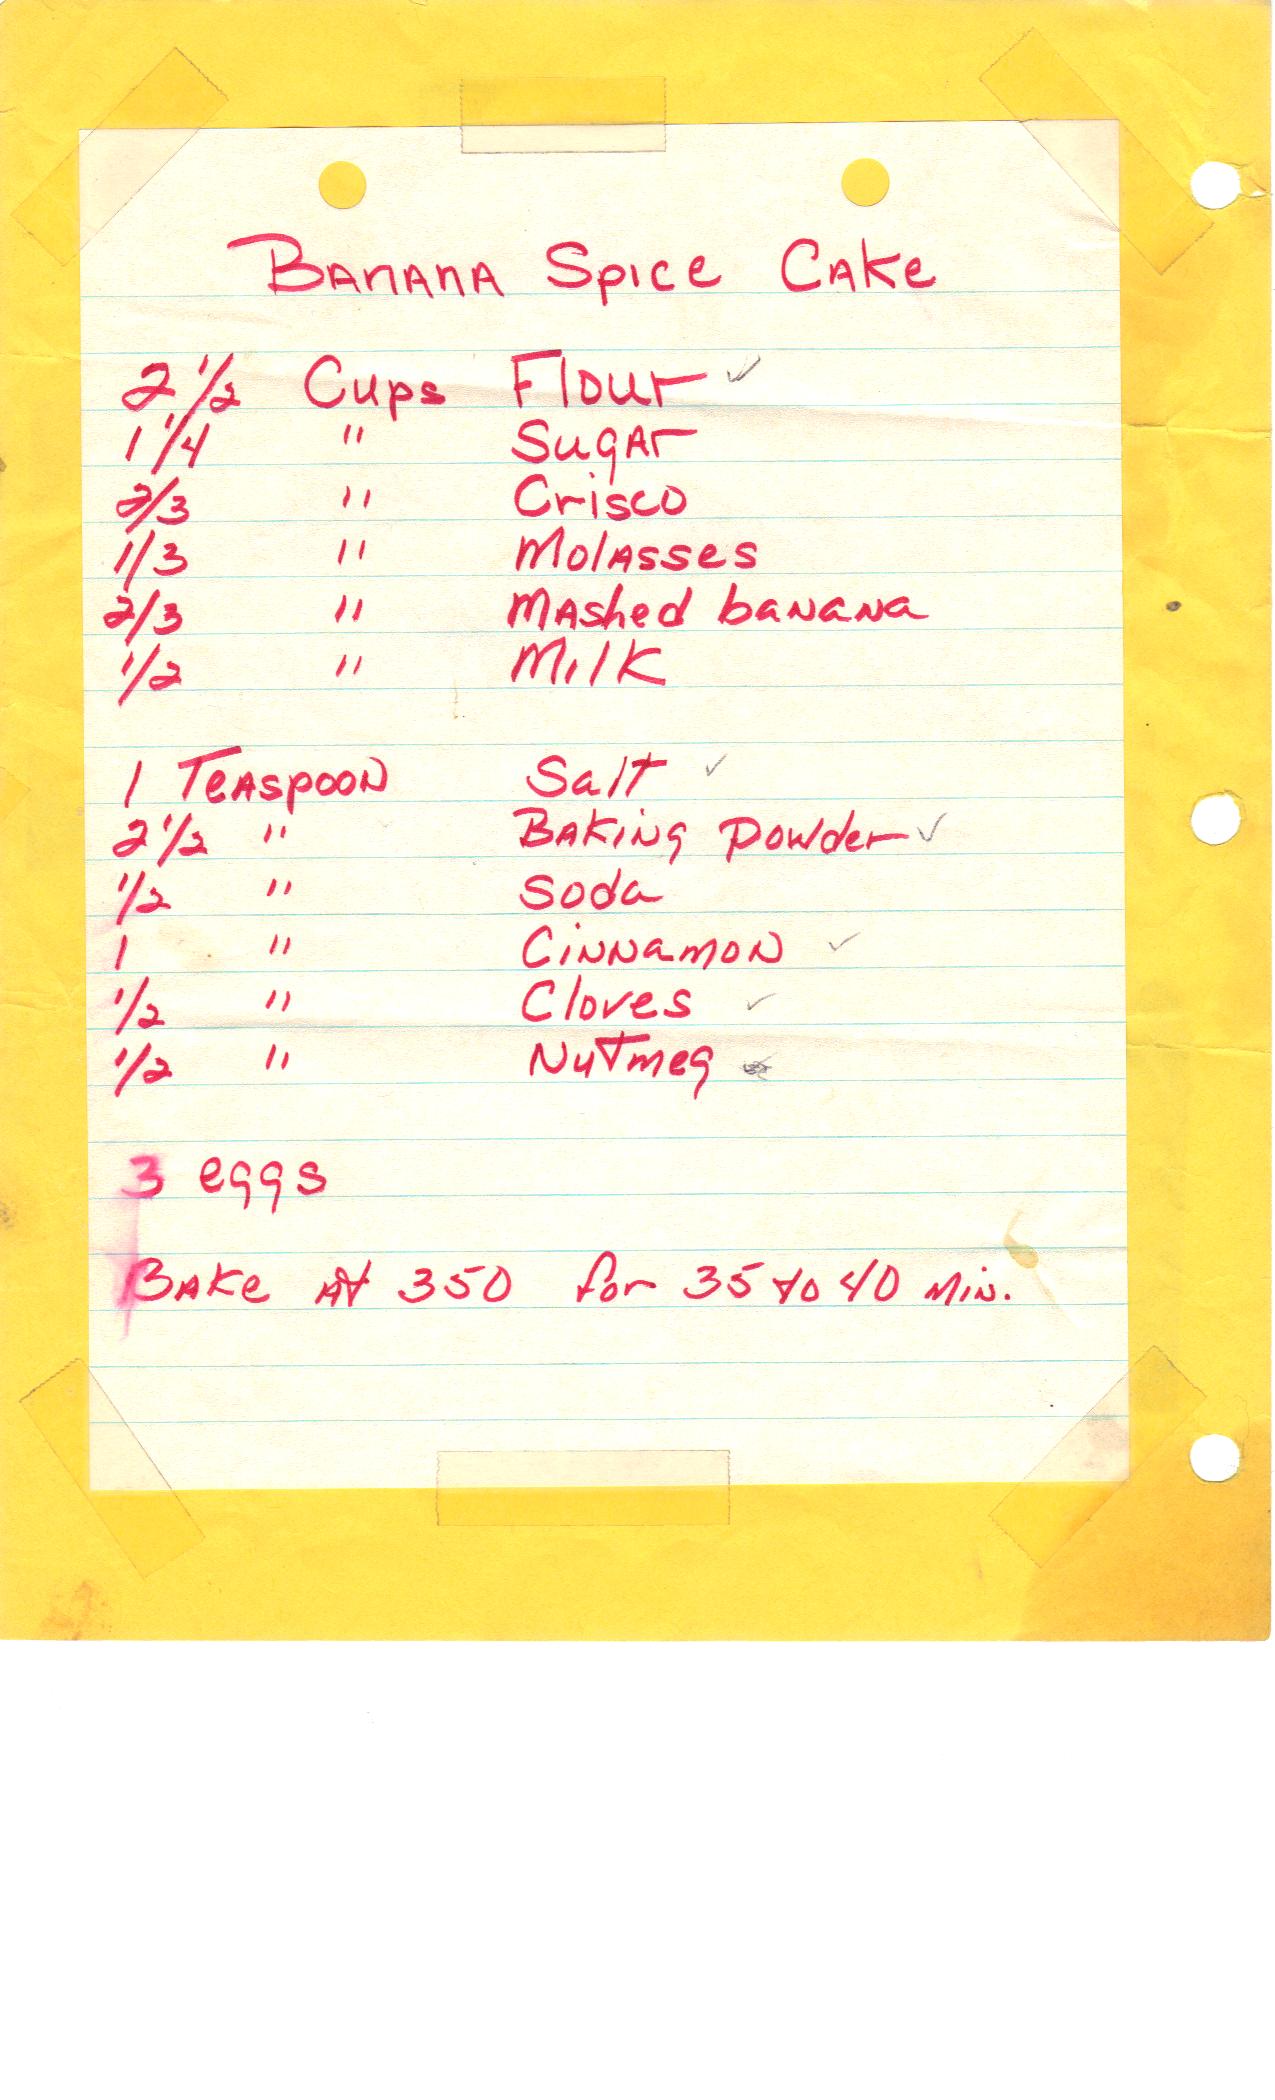 Banana Spice Cake
2 1/2 Cups Flour ✓
1 1/4 " Sugar
2/3 " Crisco
1/3 " Molasses
2/3 " Mashed banana
1/2 " Milk
1 Teaspoon Salt ✓
2 1/2 " Baking Powder ✓
1/2 " Soda
1 " Cinnamon ✓
1/2 " Cloves ✓
1/2 " Nutmeg
3 eggs
Bake at 350 for 35 to 40 min.